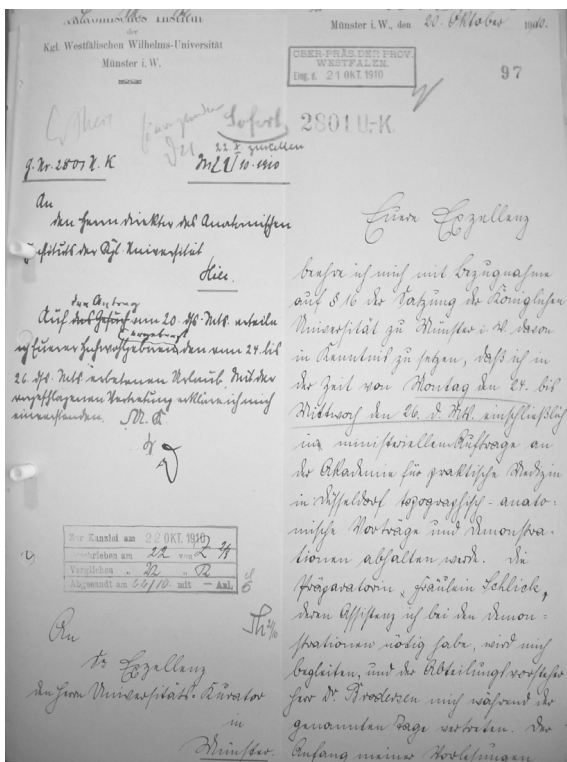 Anatomisches Institut
der
Kgl. Westfälischen Wilhelms-Universität
Münster i. W.
Münster i. W., den 20. Oktober 1910.
OBER-PRÄS. DER PROV.
WESTFALEN.
Eing. d. 21 OKT. 1910
97
Sofort
2801 U.-K.
J. Nr. 2801 U. K
M 21/10. 1910
An
den Herrn Direktor des Anatomischen
Instituts der Kgl. Universität
Hier.
den Antrag
Auf das Gesuch vom 20. dfs. Mts. erteile
ich Euerer Hochwohlgeboren den vom 24. bis
26. dfs. Mts. erbetenen Urlaub. Mit der
vorgeschlagenen Vertretung erkläre ich mich
einverstanden. 
Zur Kanzlei am 22 OKT. 1910
Geschrieben am 22 von
Verglichen " 22 "
Abgesandt am 22/10 mit — Anl.
An
Sr. Exzellenz
den Herrn Universitäts-Kurator
in
Münster.
Euere Exzellenz
beehre ich mich mit Bezugnahme
auf § 16 der Satzung der Königlichen
Universität zu Münster i. W. davon
in Kenntnis zu setzen, daß ich in
der Zeit von Montag den 24. bis
Mittwoch den 26. d. Mts. einschließlich
im ministeriellen Auftrage an
der Akademie für praktische Medizin
in Düsseldorf topographisch-anato-
mische Vorträge und Demonstra-
tionen abhalten werde. Die
Präparatorin, Fräulein Schlick,
deren Assistenz ich bei den Demon-
strationen nötig habe, wird mich
begleiten, und der Abteilungsvorsteher
Herr Dr. Brodersen mich während der
genannten Tage vertreten. Der
Anfang meiner Vorlesungen